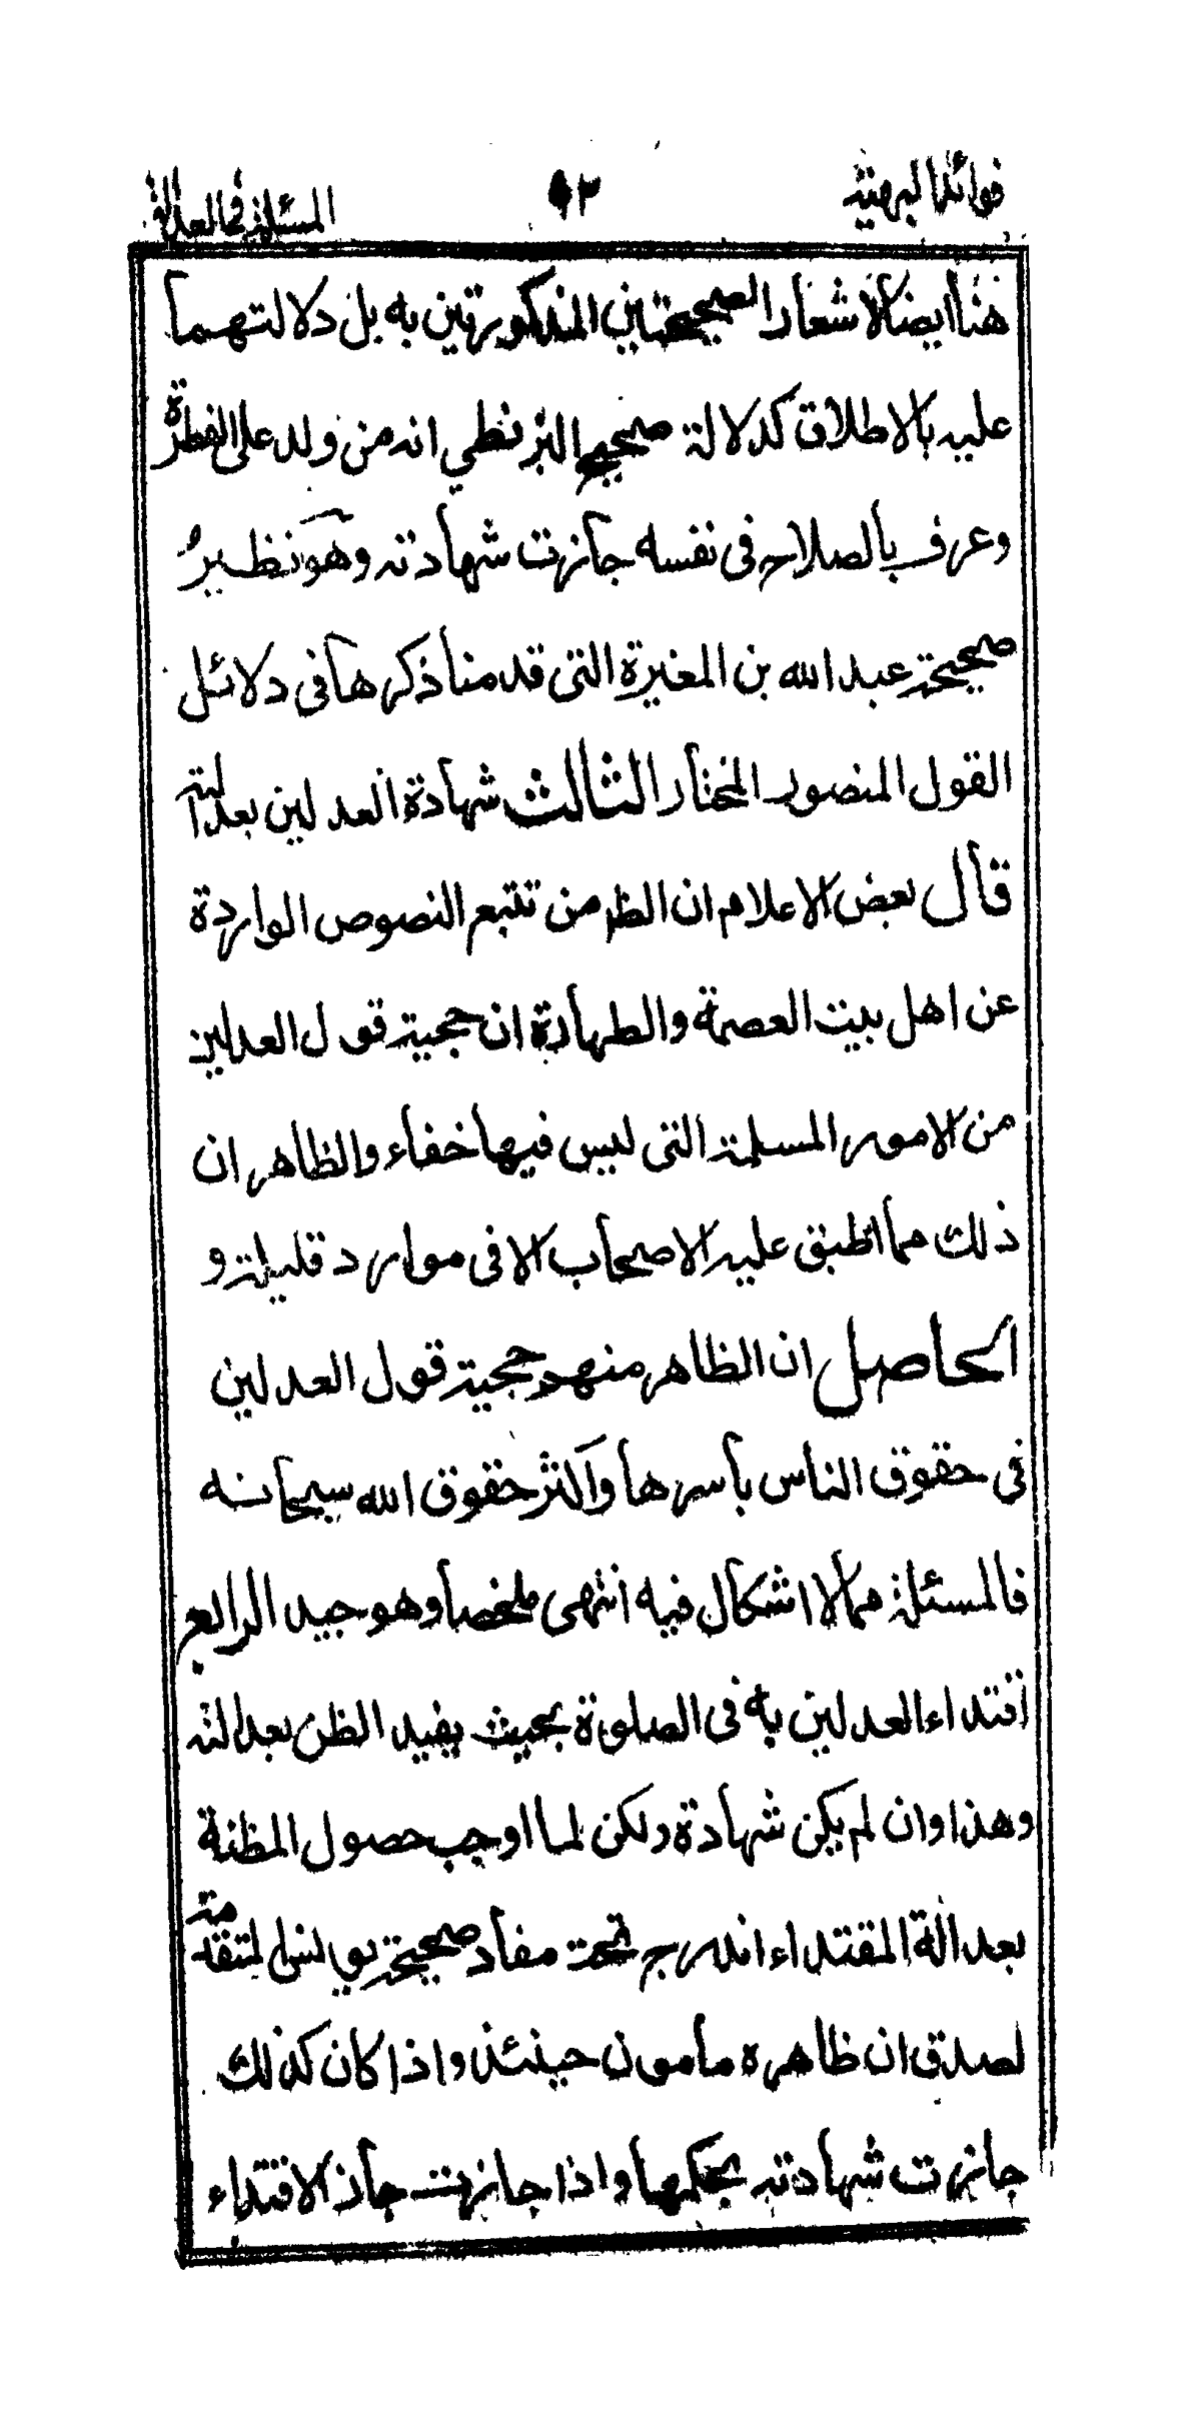 فوائد البهية ٩٢ المسئلة في العدالة
هنا أيضا لاشعار الصحيحتين المذكورتين به بل دلالتهما
عليه بالاطلاق كدلالة صحيحة البزنطي انه من ولد على الفطرة
وعرف بالصلاح في نفسه جازت شهادته وهو نظير
صحيحة عبد الله بن المغيرة التي قدمنا ذكرها في دلائل
القول المنصور المختار الثالث شهادة العدلين بعدالته
قال بعض الاعلام ان الظ من تتبع النصوص الواردة
عن اهل بيت العصمة والطهارة ان حجية قول العدلين
من الامور المسلمة التي ليس فيها خفاء والظاهر ان
ذلك مما اطبق عليه الاصحاب الا في موارد قليلة و
الحاصل ان الظاهر منهم حجية قول العدلين
في حقوق الناس بأسرها واكثر حقوق الله سبحانه
فالمسئلة مما لا اشكال فيه انتهى ملخصا وهو جيد الرابع
اقتداء العدلين به في الصلوة بحيث يفيد الظن بعدالته
وهذا وان لم يكن شهادة ولكن لما اوجب حصول المظنة
بعدالة المقتداء اندرج تحت مفاد صحيحة يونس المتقدمة
لصدق ان ظاهره مأمون حينئذ واذا كان كذلك
جازت شهادته بحكمها واذا جازت جاز الاقتداء